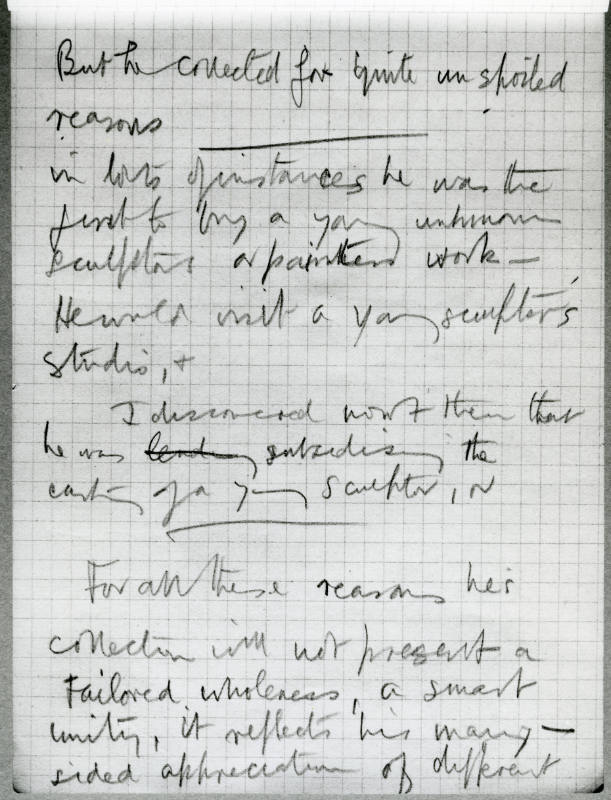 But he collected for quite unspoiled
reasons
in lots of instances he was the
first to buy a young unknown
sculptors or painters work —
He would visit a young sculptor's
studio, +
I discovered now & then that
he was lending subsidising the
casting of a young sculptor, or
For all these reasons his
collection will not present a
tailored wholeness, a smart
unity, it reflects his many-
sided appreciation of different